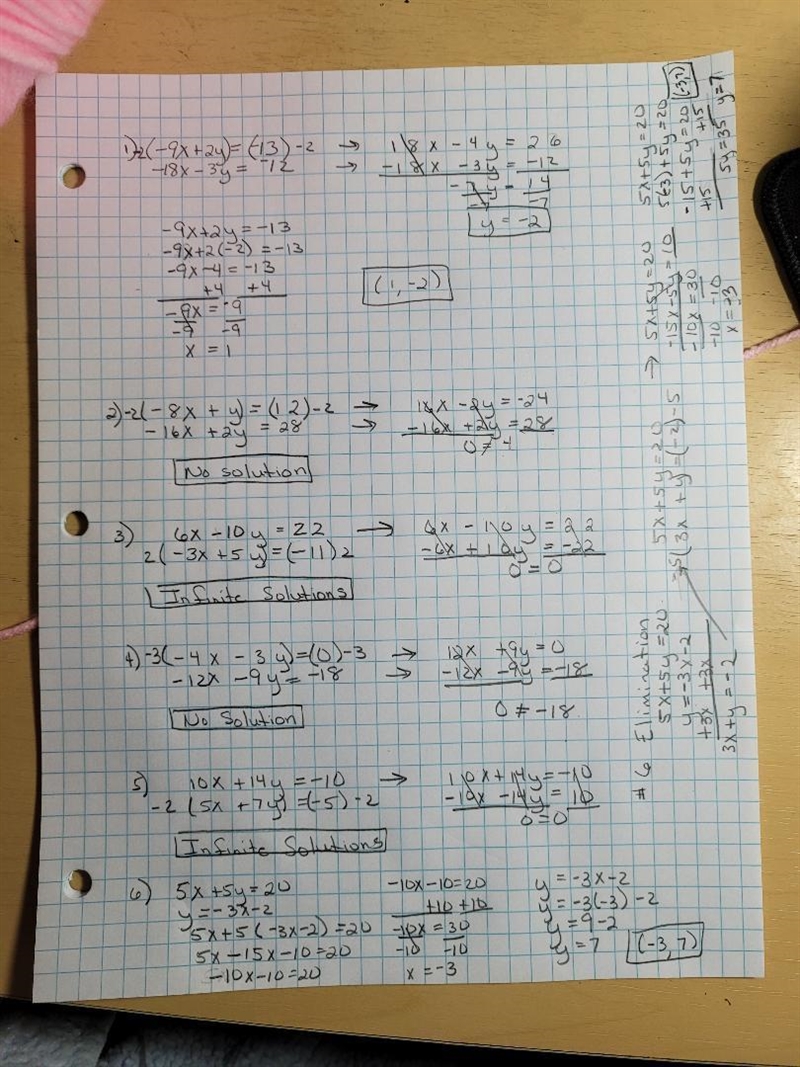 1) -2(-9x+2y)=(-13)-2 → 18x - 4y = 26
-18x-3y = -12 → -18x -3y = -12
-7y = 14
-7 -7
y = -2
-9x+2y=-13
-9x+2(-2)=-13
-9x-4=-13
+4 +4
-9x = -9
-9 -9
x = 1
(1,-2)
2) -2(-8x + y) = (12)-2 → 16x -2y = -24
-16x + 2y = 28 → -16x +2y = 28
0 ≠ 4
No solution
3) 6x -10y = 22 → 6x - 10y = 22
2(-3x+5y)=(-11)2 -6x + 10y = -22
0 = 0
Infinite Solutions
4) -3(-4x - 3y)=(0)-3 → 12x +9y = 0
-12x -9y = -18 → -12x -9y = -18
0 ≠ -18
No Solution
5) 10x + 14y = -10 → 10x+14y = -10
-2 (5x + 7y) =(-5)-2 -10x -14y = 10
0 = 0
Infinite Solutions
6) 5x+5y=20
y=-3x-2
5x+5(-3x-2)=20
5x-15x-10=20
-10x-10=20
-10x-10=20
+10 +10
-10x = 30
-10 -10
x = -3
y = -3x-2
y = -3(-3) -2
y = 9-2
y = 7
(-3,7)
# 6 Elimination
5x+5y=20
y=-3x-2
+3x +3x
3x+y=-2
5x+5y=20
-5(3x + y)=(-2)-5
→ 5x+5y=20
-15x-5y=10
-10x = 30
-10 -10
x=-3
5x+5y=20
5(-3)+5y=20
-15+5y=20
+15 +15
5y=35 y=7
(-3,7)